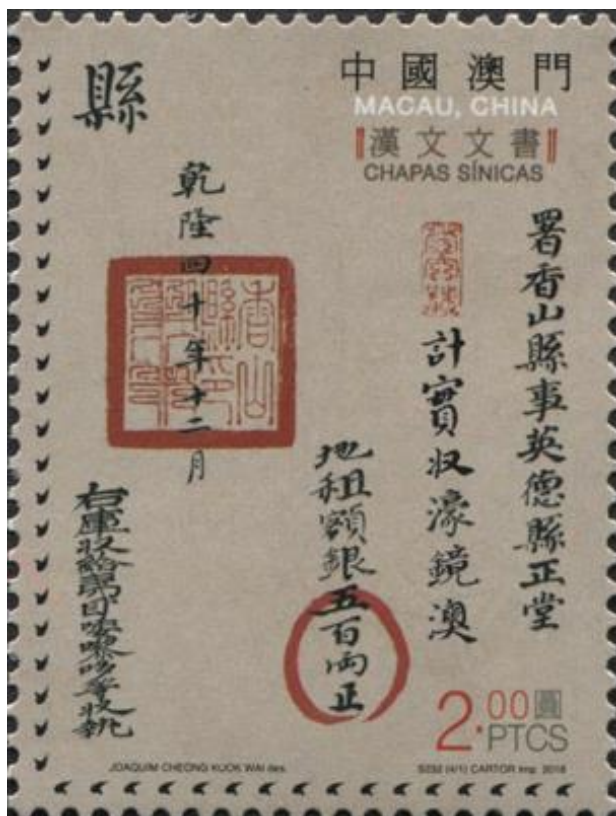 中國澳門
MACAU, CHINA
漢文文書
CHAPAS SÍNICAS
署香山縣事英德縣正堂
計實收濠鏡澳
地租額銀五百両正
乾隆四十年十二月
縣
2.00圓
PTCS
JOAQUIM CHEONG KUOK WAI des.
S232 (4/1) CARTOR imp. 2018